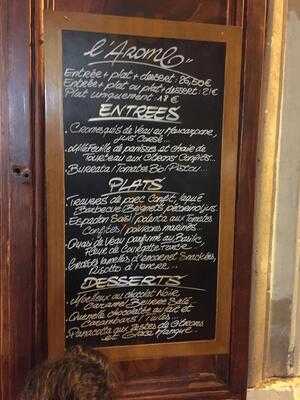 L'AROME
Entrée + plat + dessert: 25,50€
Entrée + plat ou plat + dessert: 21€
Plat uniquement 18€
ENTREES
. Cromesquis de Veau au Mascarpone,
jus Corsé
. Millefeuille de panisses et chair de
Tourteau aux Citrons Confits..
. Burrata / Tomates Bio / Pistou...
PLATS
. Travers de porc Confit, laqué
Barbecue,
. Espadon Saisi / polenta aux Tomates
Confites / poivrons marinés.
. Quasi de Veau parfumé au Basilic,
Fleur de Courgette Farcie
lamelles d'encornet Snackées,
Risotto à l'encre...
DESSERTS
. Moelleux au chocolat Noir,
Caramel Beurre Salé
. Quenelle chocolatée au lait et
Carambars / Tuiles...
. Panacotta aux Zestes de Citrons
et Glace Mangue